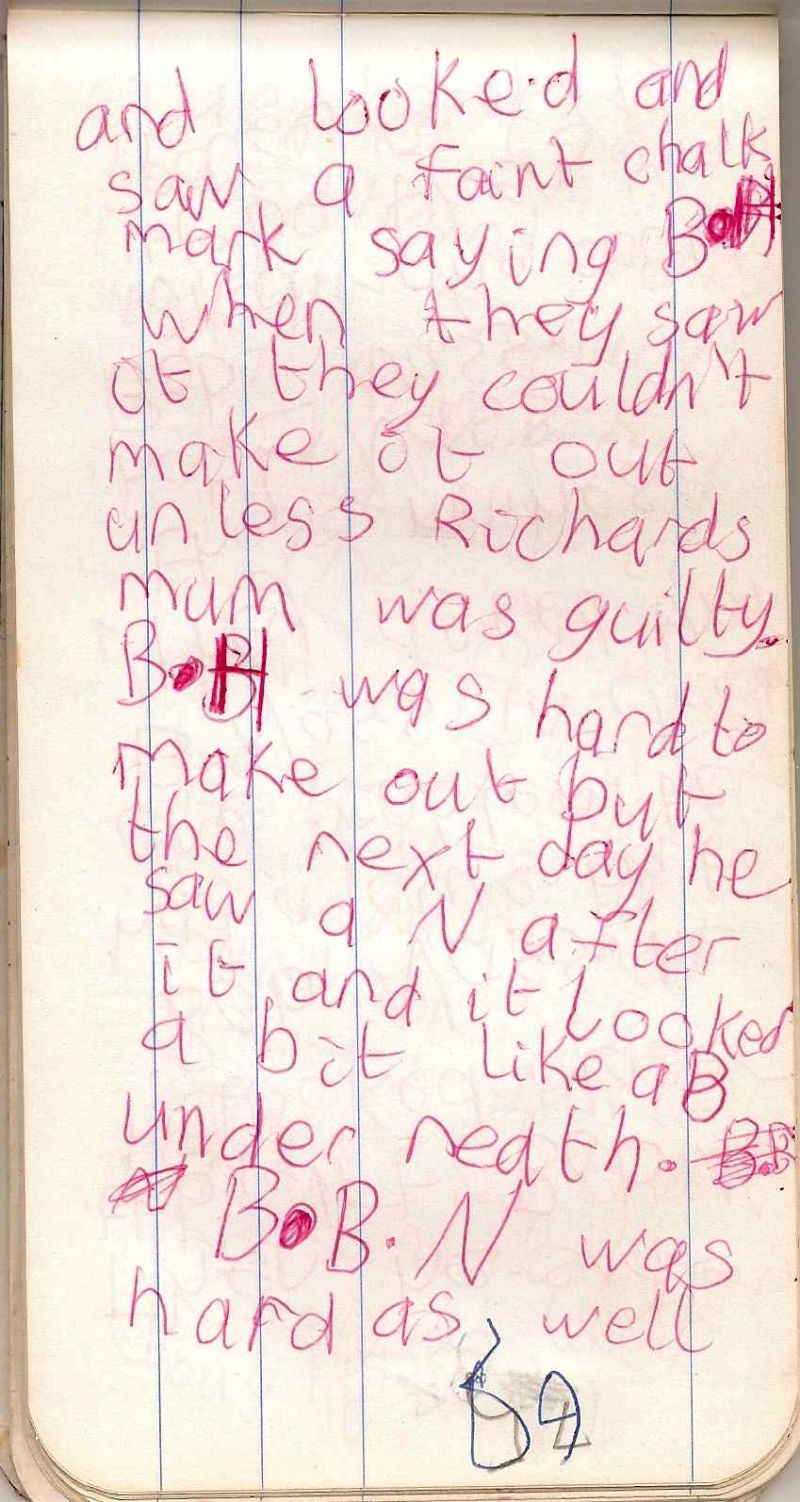 and looked and
saw a faint chalk
mark saying B.H
when they saw
it they couldn't
make it out
unless Richards
mum was guilty.
B.H was hard to
make out but
the next day he
saw a N after
it and it looked
a bit like a B
under neath.
B.B.N was
hard as well